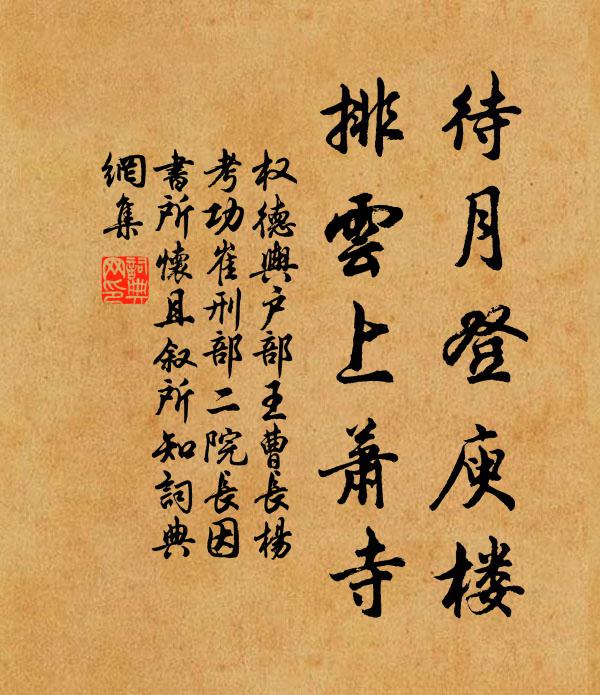 待月登庾楼
排雲上蕭寺
权德輿户部王曹長楊
考功崔刑部二院長因
書所懷且叙所知詞典
網集
詞典
网印